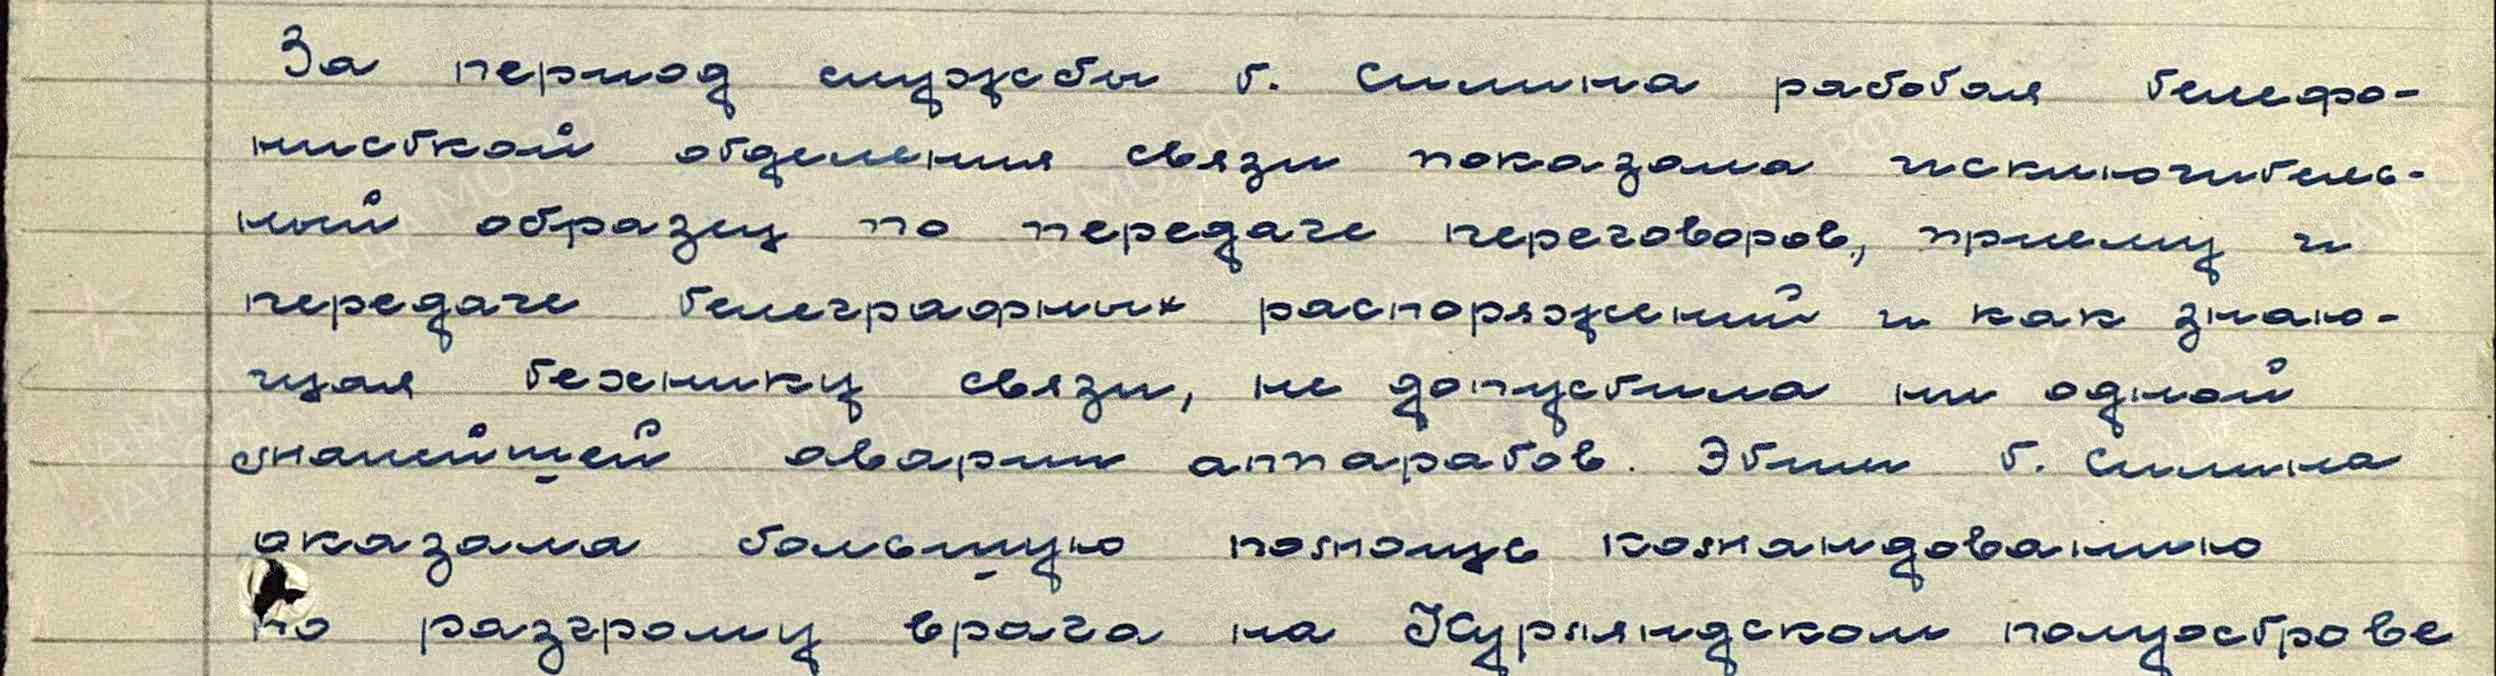 За период службы т. Силина работая телефо-
нисткой отделения связи показала исключитель-
ный образец по передаче переговоров, приему и
передаче телеграфных распоряжений и как знаю-
щая технику связи, не допустила ни одной
малейшей аварии аппаратов. Этим т. Силина
оказала большую помощь командованию
по разгрому врага на Курляндском полуострове